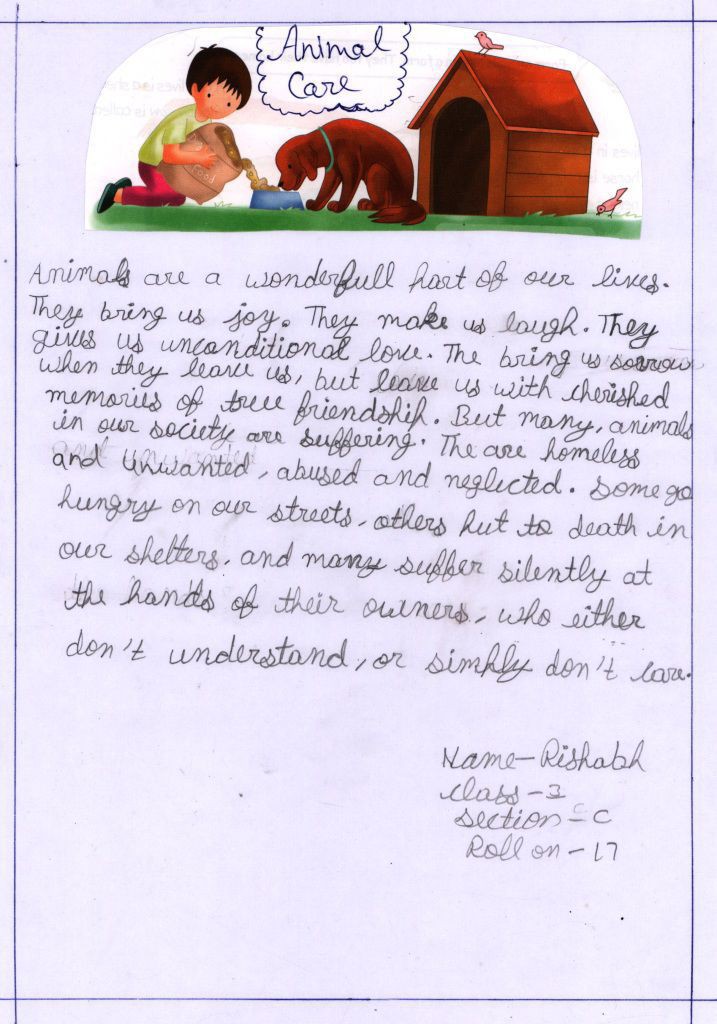 Animal
Care
Food
Animals are a wonderfull part of our lives.
They bring us joy. They make us laugh. They
gives us unconditional love. The bring us sorrow
when they leave us, but leave us with cherished
memories of true friendship. But many, animals
in our society are suffering. The are homeless
and unwanted, abused and neglected. Some go
hungry on our streets, others put to death in
our shelters, and many suffer silently at
the hands of their owners, who either
don't understand, or simply don't care.
Name-Rishabh
Class-I
Section-C
Roll on-17